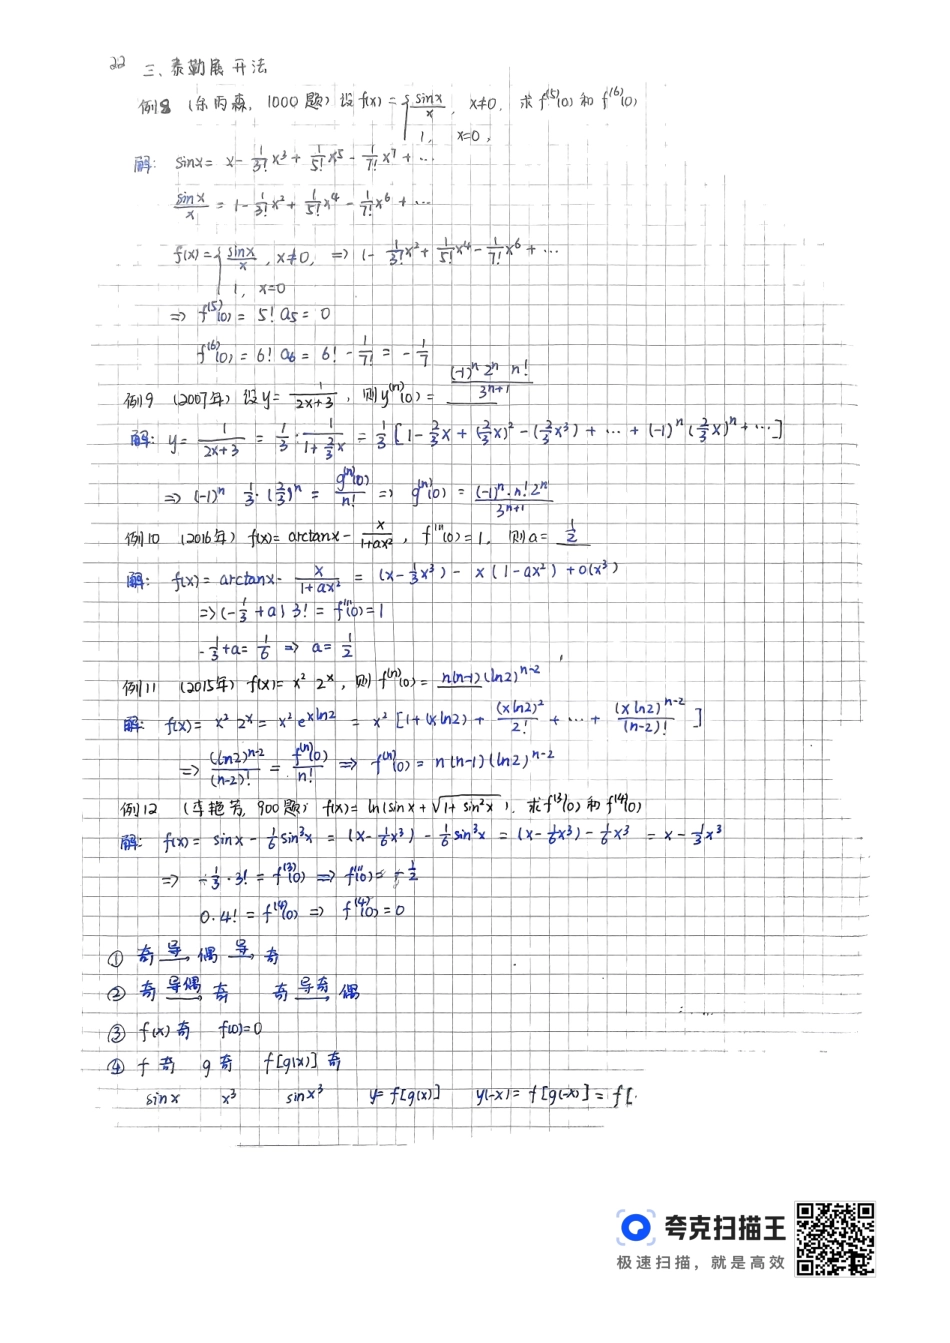 22 三、泰勒展开法
例8 (余丙森, 1000题) 设 f(x) = { sinx/x, x≠0, 求 f⁽⁵⁾(0) 和 f⁽⁶⁾(0)
1, x=0,
解: sinx = x - 1/3! x³ + 1/5! x⁵ - 1/7! x⁷ + …
sinx/x = 1 - 1/3! x² + 1/5! x⁴ - 1/7! x⁶ + …
f(x) = { sinx/x, x≠0, => 1 - 1/3! x² + 1/5! x⁴ - 1/7! x⁶ + …
1, x=0
=> f⁽⁵⁾(0) = 5! a₅ = 0
f⁽⁶⁾(0) = 6! a₆ = 6! - 1/7! = - 1/7
例9 (2007年) 设 y = 1/(2x+3), 则 y⁽ⁿ⁾(0) = (-1)ⁿ 2ⁿ n! / 3ⁿ⁺¹
解: y = 1/(2x+3) = 1/3 · 1/(1+2/3 x) = 1/3 [1 - 2/3 x + (2/3 x)² - (2/3 x³) + … + (-1)ⁿ (2/3 x)ⁿ + …]
=> (-1)ⁿ 1/3 · (2/3)ⁿ = g⁽ⁿ⁾(0)/n! => g⁽ⁿ⁾(0) = (-1)ⁿ · n! 2ⁿ / 3ⁿ⁺¹
例10 (2016年) f(x) = arctanx - x/(1+ax²), f'''(0) = 1, 则 a = 1/2
解: f(x) = arctanx - x/(1+ax²) = (x - 1/3 x³) - x(1 - ax²) + o(x³)
=> (-1/3 + a) 3! = f'''(0) = 1
-1/3 + a = 1/6 => a = 1/2
例11 (2015年) f(x) = x² 2ˣ, 则 f⁽ⁿ⁾(0) = n(n-1)(ln2)ⁿ⁻²
解: f(x) = x² 2ˣ = x² e^(xln2) = x² [1 + (xln2) + (xln2)²/2! + … + (xln2)ⁿ⁻²/(n-2)! ]
=> (ln2)ⁿ⁻²/(n-2)! = f⁽ⁿ⁾(0)/n! => f⁽ⁿ⁾(0) = n(n-1)(ln2)ⁿ⁻²
例12 (李艳芳, 900题) f(x) = ln(sinx + √(1+sin²x)), 求 f⁽³⁾(0) 和 f⁽⁴⁾(0)
解: f(x) = sinx - 1/6 sin³x = (x - 1/6 x³) - 1/6 sin³x = (x - 1/6 x³) - 1/6 x³ = x - 1/3 x³
=> -1/3 · 3! = f⁽³⁾(0) => f'''(0) =
0·4! = f⁽⁴⁾(0) => f⁽⁴⁾(0) = 0
① 奇 —导→ 偶 —导→ 奇
② 奇 —导偶→ 奇 奇 —导奇→ 偶
③ f(x) 奇 f(0)=0
④ f 奇 g 奇 f[g(x)] 奇
sinx x³ sinx³ y = f[g(x)] y(-x) = f[g(-x)] = f[
夸克扫描王
极速扫描，就是高效